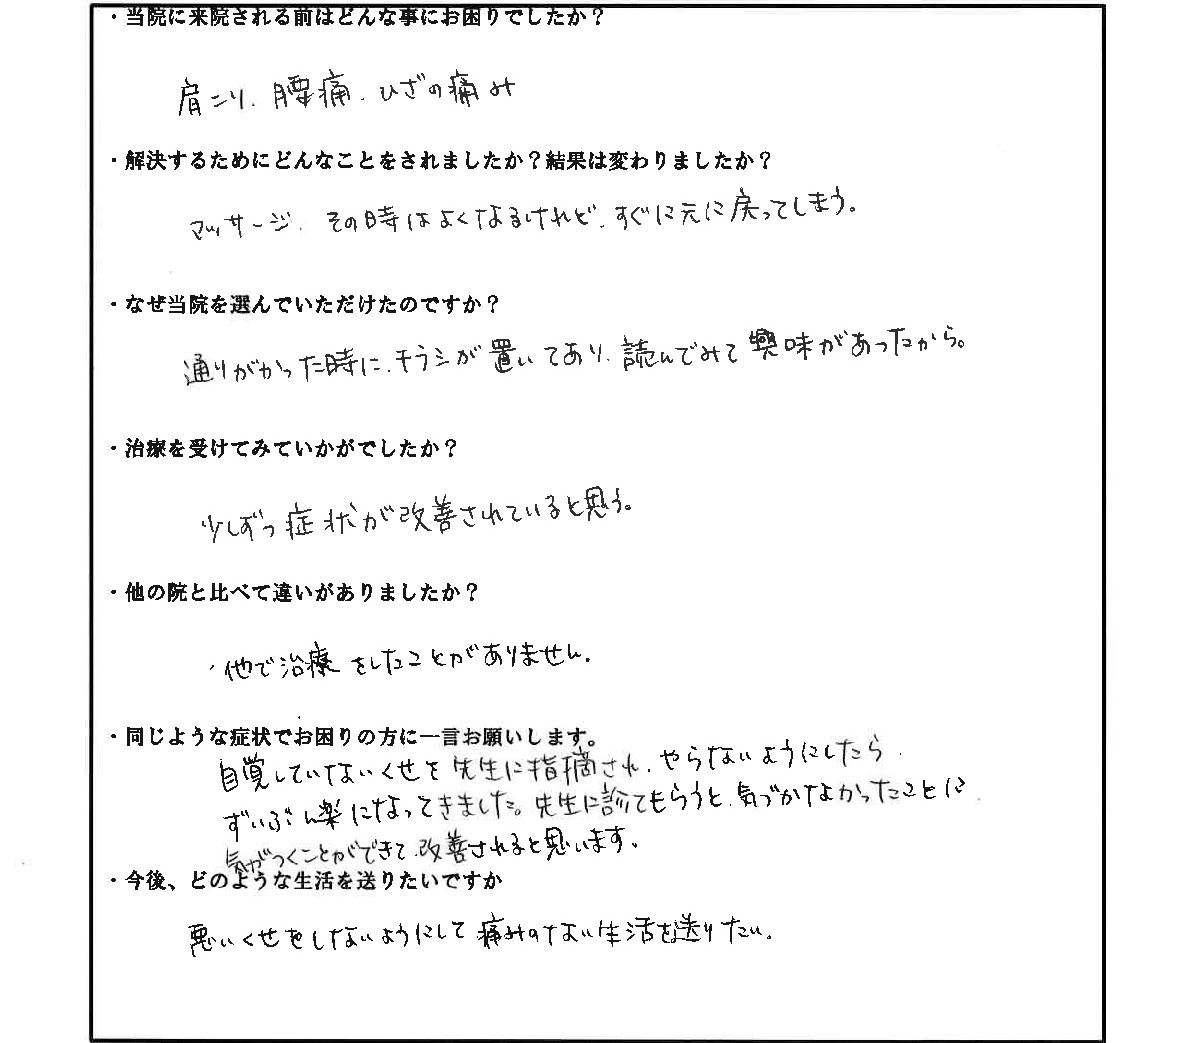 ・当院に来院される前はどんな事にお困りでしたか？
肩こり、腰痛、ひざの痛み
・解決するためにどんなことをされましたか？結果は変わりましたか？
マッサージ、その時はよくなるけれど、すぐに元に戻ってしまう。
・なぜ当院を選んでいただけたのですか？
通りがかった時に、チラシが置いてあり、読んでみて興味があったから。
・治療を受けてみていかがでしたか？
少しずつ症状が改善されていると思う。
・他の院と比べて違いがありましたか？
・他で治療をしたことがありません。
・同じような症状でお困りの方に一言お願いします。
自覚していないくせを先生に指摘され、やらないようにしたら、
ずいぶん楽になってきました。先生に診てもらうと、気づかなかったことに
気がつくことができて、改善されると思います。
・今後、どのような生活を送りたいですか
悪いくせをしないようにして痛みのない生活を送りたい。